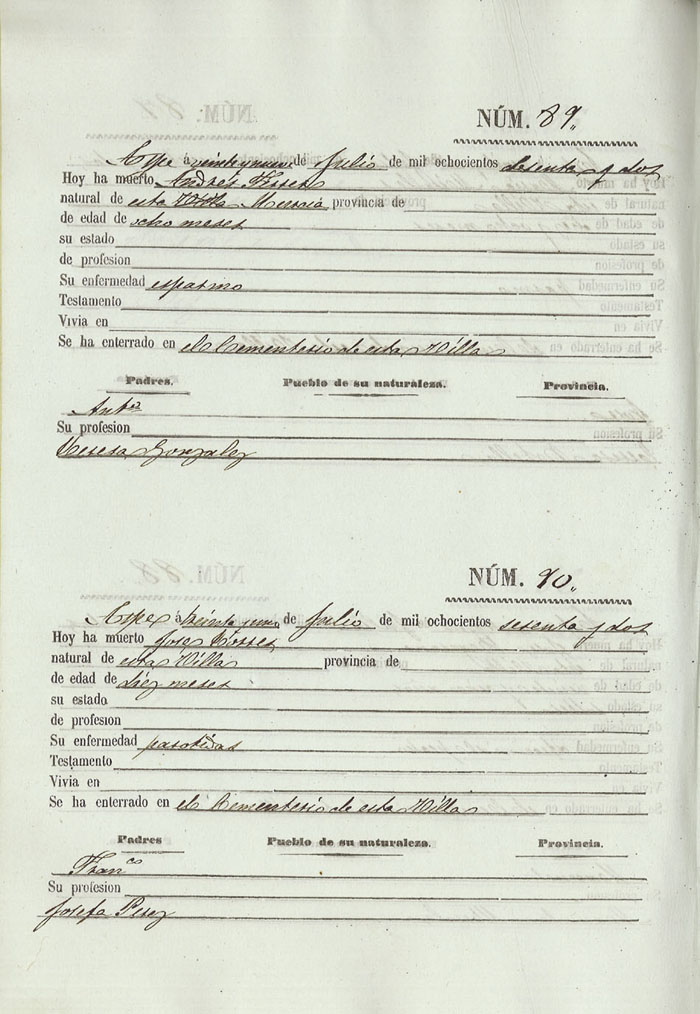 NÚM. 89.
Aspe á veinteynuebe de Julio de mil ochocientos sesenta y dos
Hoy ha muerto Andrés
natural de esta Villa provincia de
de edad de ocho meses
su estado
de profesion
Su enfermedad espasmo
Testamento
Vivia en
Se ha enterrado en el Cementerio de esta Villa
Padres. Pueblo de su naturaleza. Provincia.
Ant.º
Su profesion
Teresa Gonzalez
NÚM. 90.
Aspe á treinta y uno de Julio de mil ochocientos sesenta y dos
Hoy ha muerto Jose Torres
natural de esta Villa provincia de
de edad de diez meses
su estado
de profesion
Su enfermedad parotidas
Testamento
Vivia en
Se ha enterrado en el Cementerio de esta Villa
Padres Pueblo de su naturaleza. Provincia.
Fran.co
Su profesion
Josefa Perez